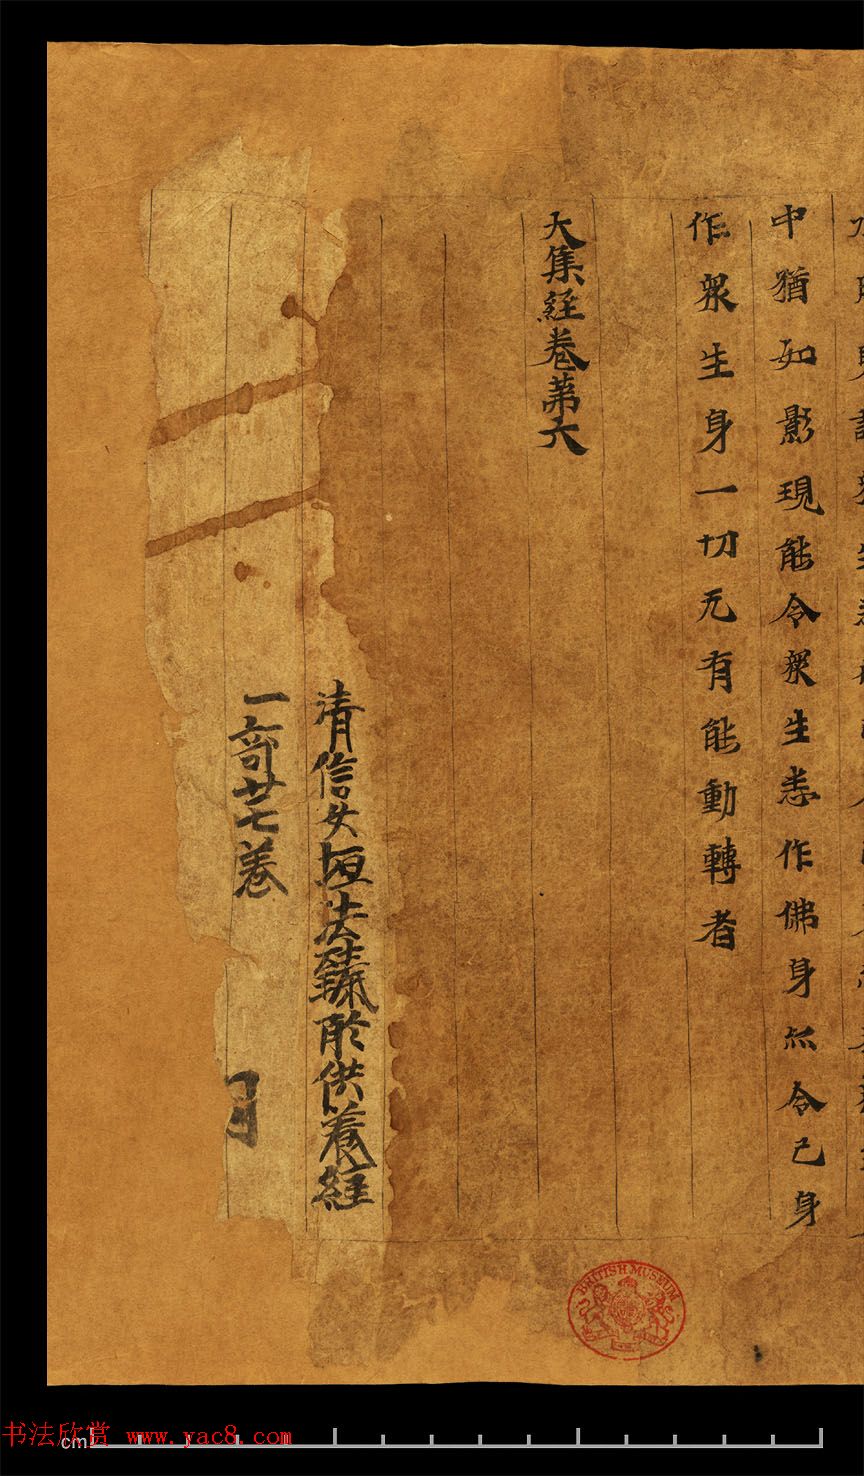 中猶如影現能令衆生悉作佛身亦令己身
作衆生身一切无有能動轉者
大集経卷第六
清信女垣法臻所供養経
一部廿七卷
月
BRITISH MUSEUM
书法欣赏 www.yac8.com
cm